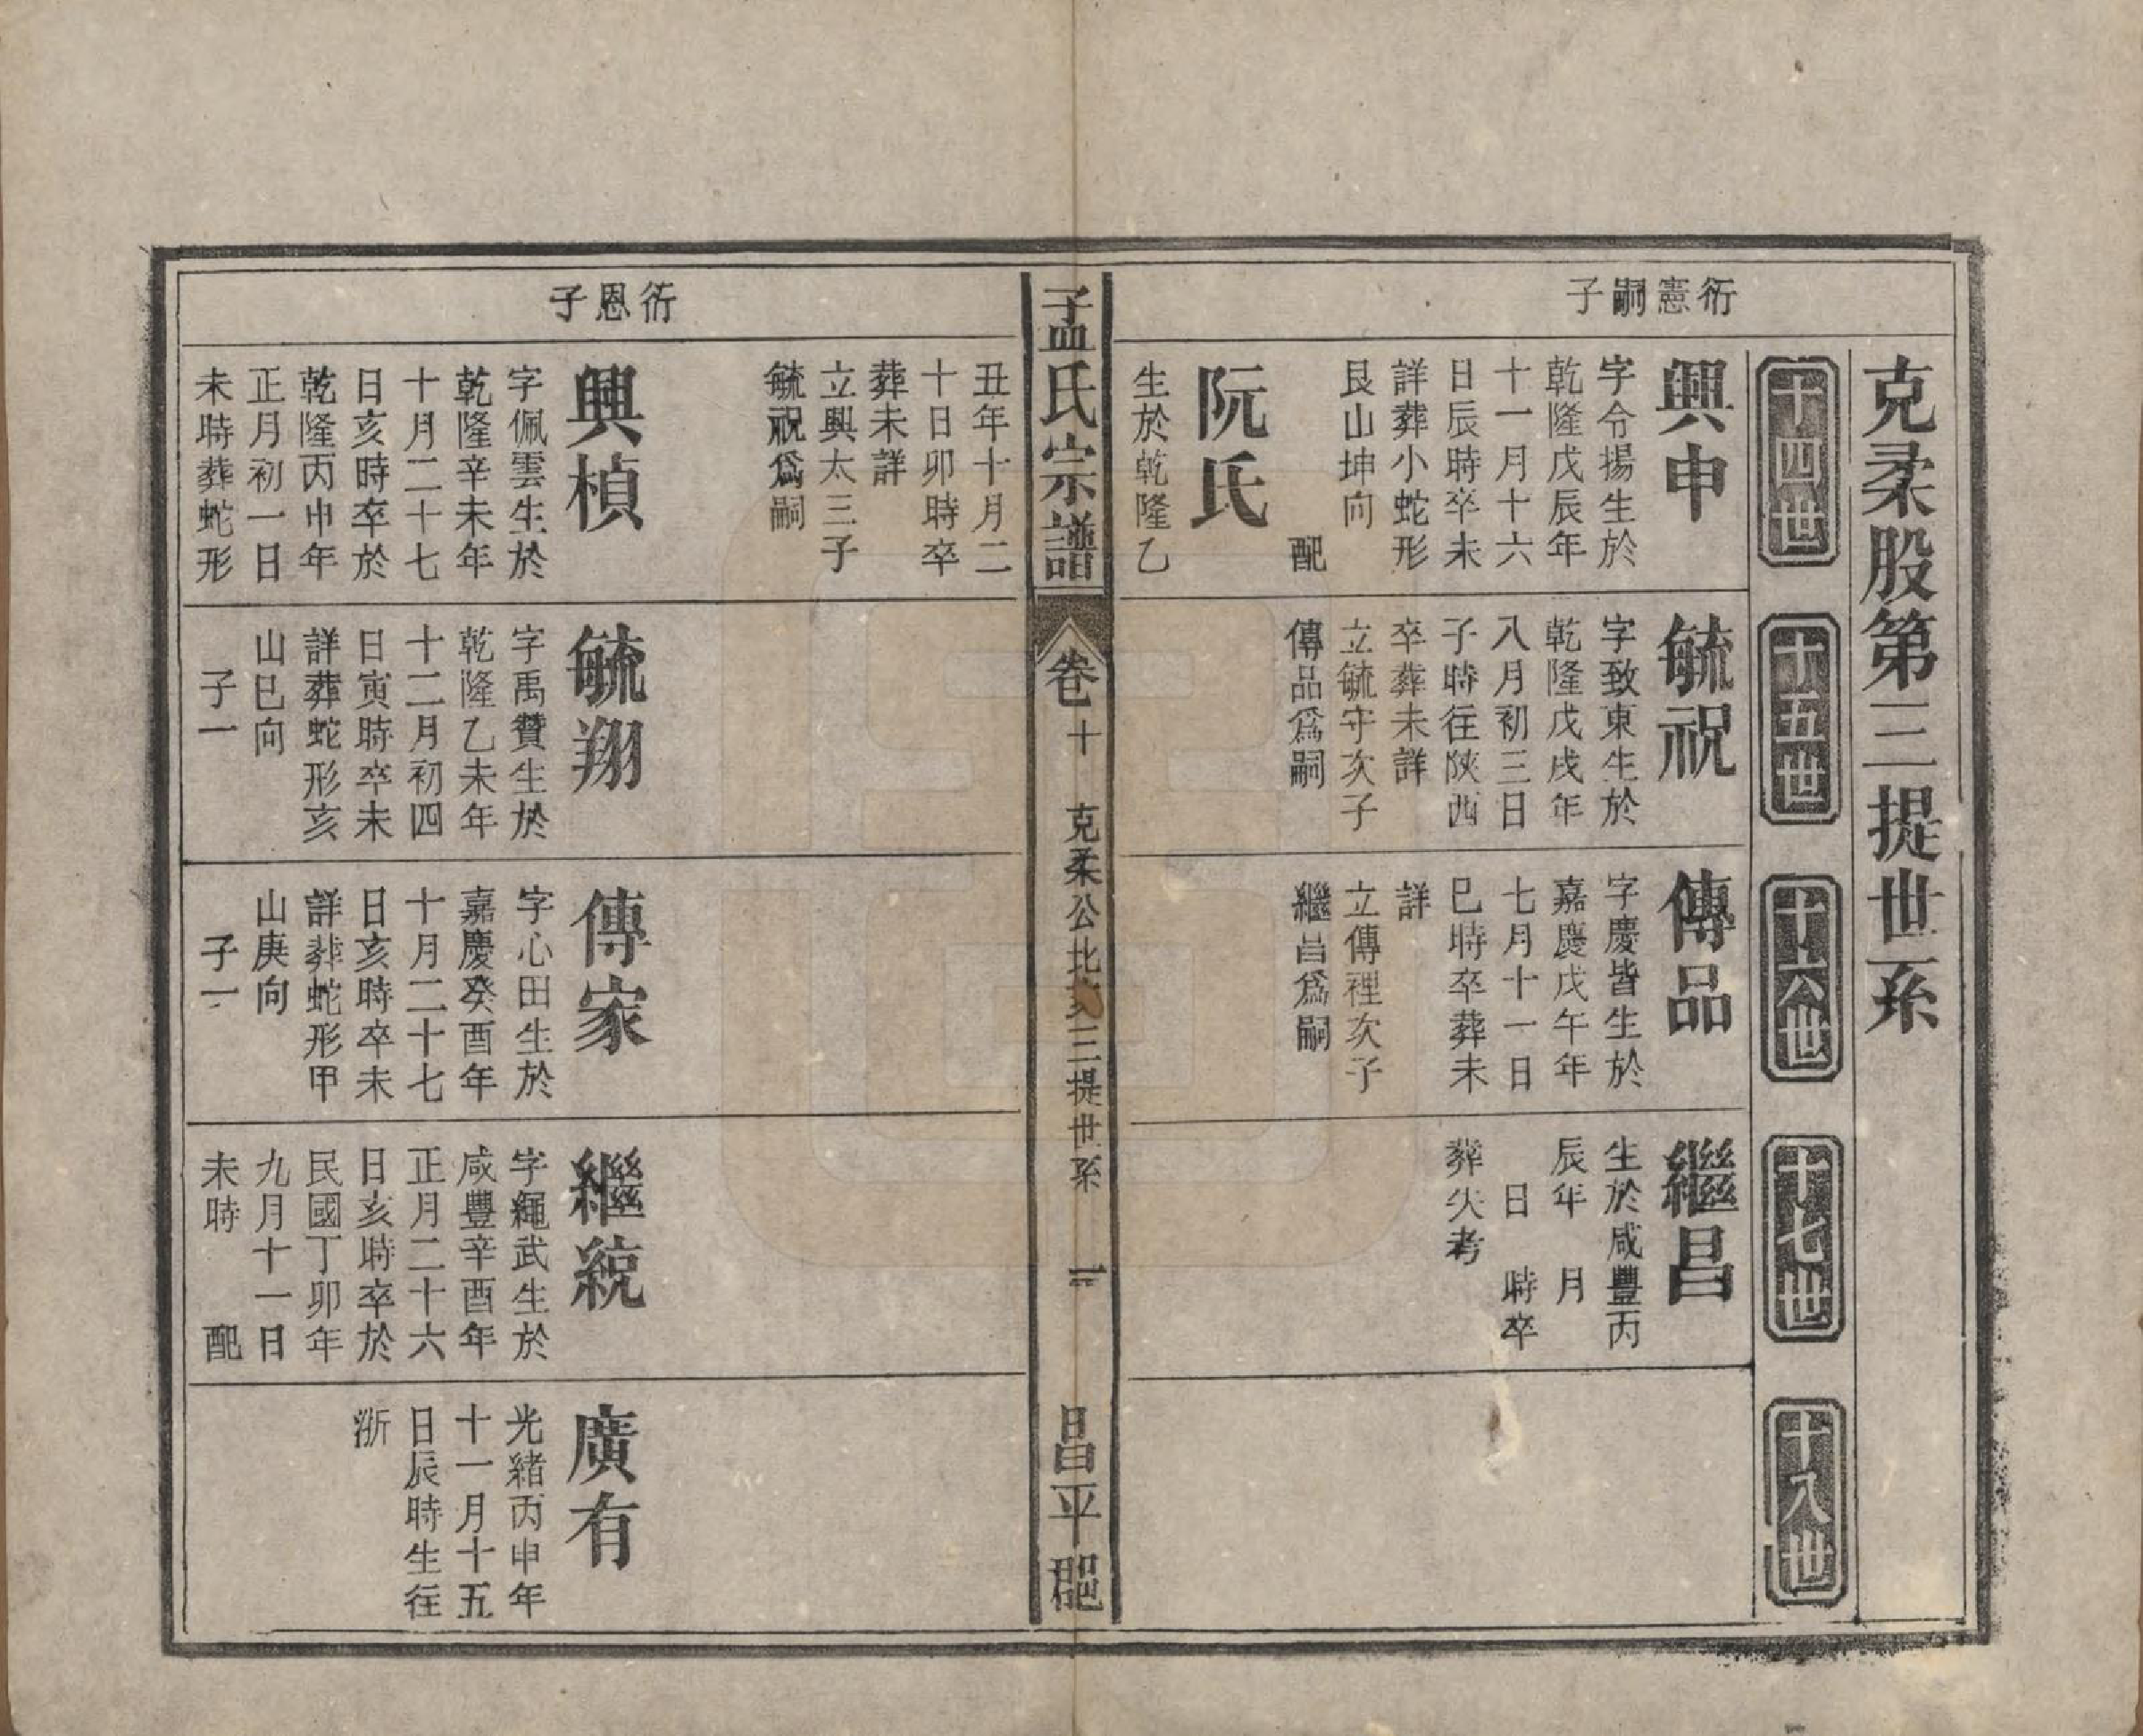 克柔股第三提世系
十四世
十五世
十六世
十七世
十八世
衍憲嗣子
興申
字令揚生於
乾隆戊辰年
十一月十六
日辰時卒未
詳葬小蛇形
艮山坤向
配
阮氏
生於乾隆乙
毓祝
字致東生於
乾隆戊戌年
八月初三日
子時往陝西
卒葬未詳
立毓守次子
傳品爲嗣
傳品
字慶皆生於
嘉慶戊午年
七月十一日
巳時卒葬未
詳
立傳裡次子
繼昌爲嗣
繼昌
生於咸豐丙
辰年 月
日 時卒
葬失考
孟氏宗譜
卷十
克柔公北支三提世系
一
昌平郡
丑年十月二
十日卯時卒
葬未詳
立興太三子
毓祝爲嗣
衍恩子
興楨
字佩雲生於
乾隆辛未年
十月二十七
日亥時卒於
乾隆丙申年
正月初一日
未時葬蛇形
毓翔
字禹贊生於
乾隆乙未年
十二月初四
日寅時卒未
詳葬蛇形亥
山巳向
子一
傳家
字心田生於
嘉慶癸酉年
十月二十七
日亥時卒未
詳葬蛇形甲
山庚向
子一
繼統
字繩武生於
咸豐辛酉年
正月二十六
日亥時卒於
民國丁卯年
九月十一日
未時 配
廣有
光緒丙申年
十一月十五
日辰時生往
浙